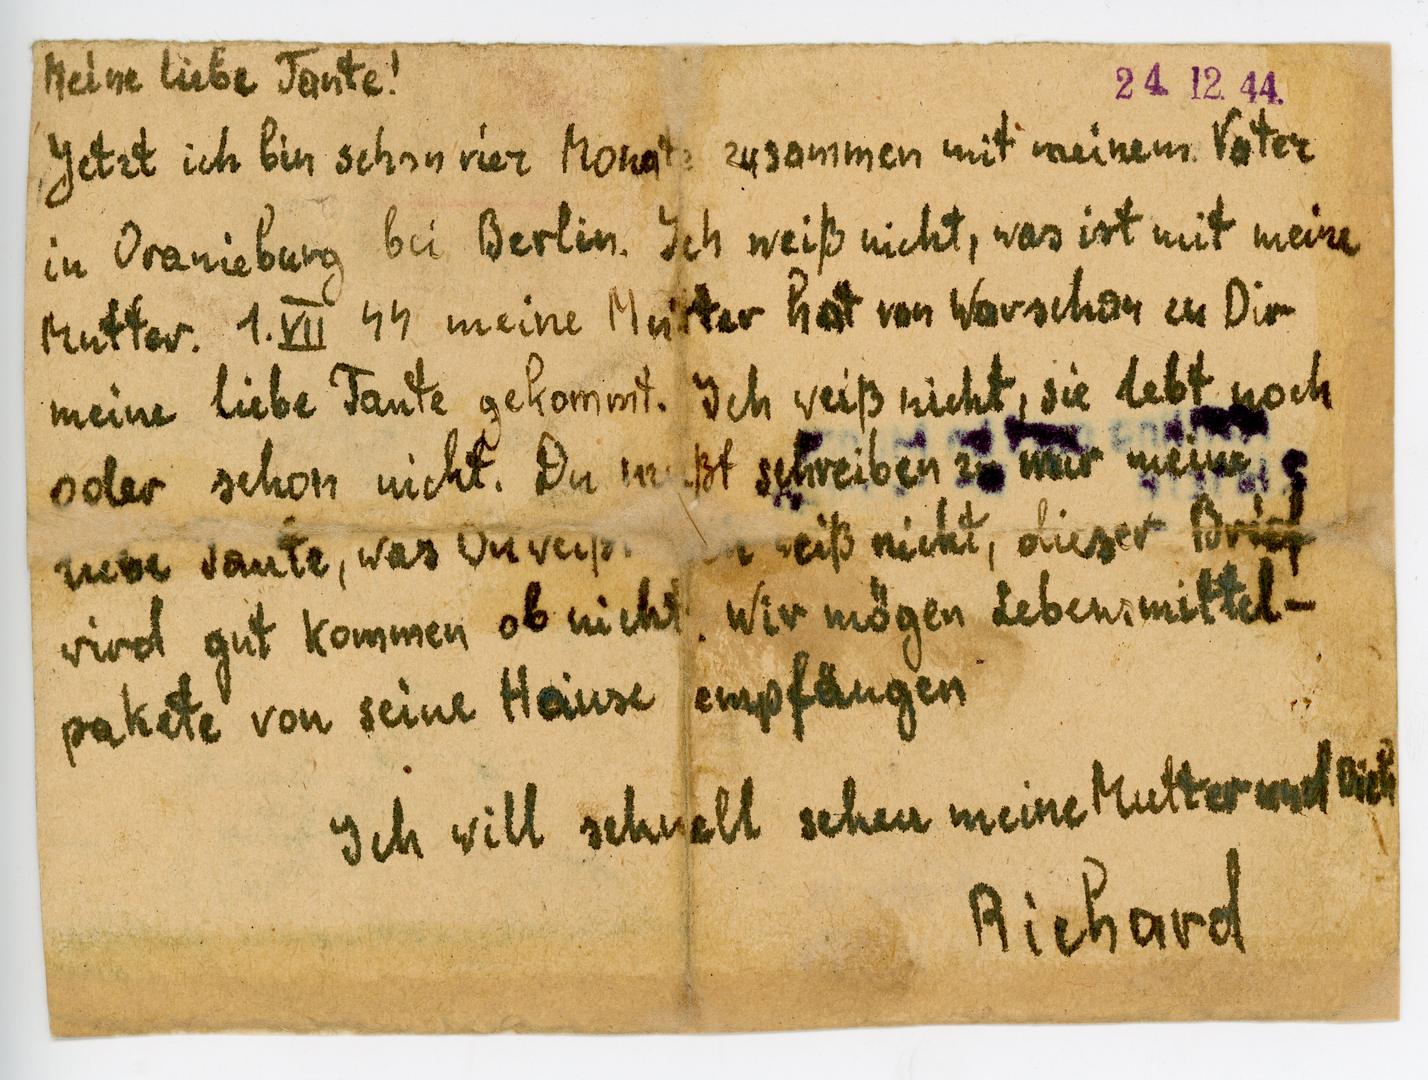 Meine liebe Tante!
24. 12. 44.
Jetzt ich bin schon vier Monate zusammen mit meinem Vater
in Oranieburg bei Berlin. Ich weiß nicht, was ist mit meine
Mutter. 1. VII 44 meine Mutter hat von Warschau zu Dir
meine liebe Tante gekommt. Ich weiß nicht, sie lebt noch
oder schon nicht. Du mußt schreiben zu mir meine
liebe Tante, was Du weißt. Ich weiß nicht, dieser Brief
wird gut kommen ob nicht. Wir mögen Lebensmittel-
pakete von seine Hause empfängen
Ich will schnell sehen meine Mutter und Dich
Richard